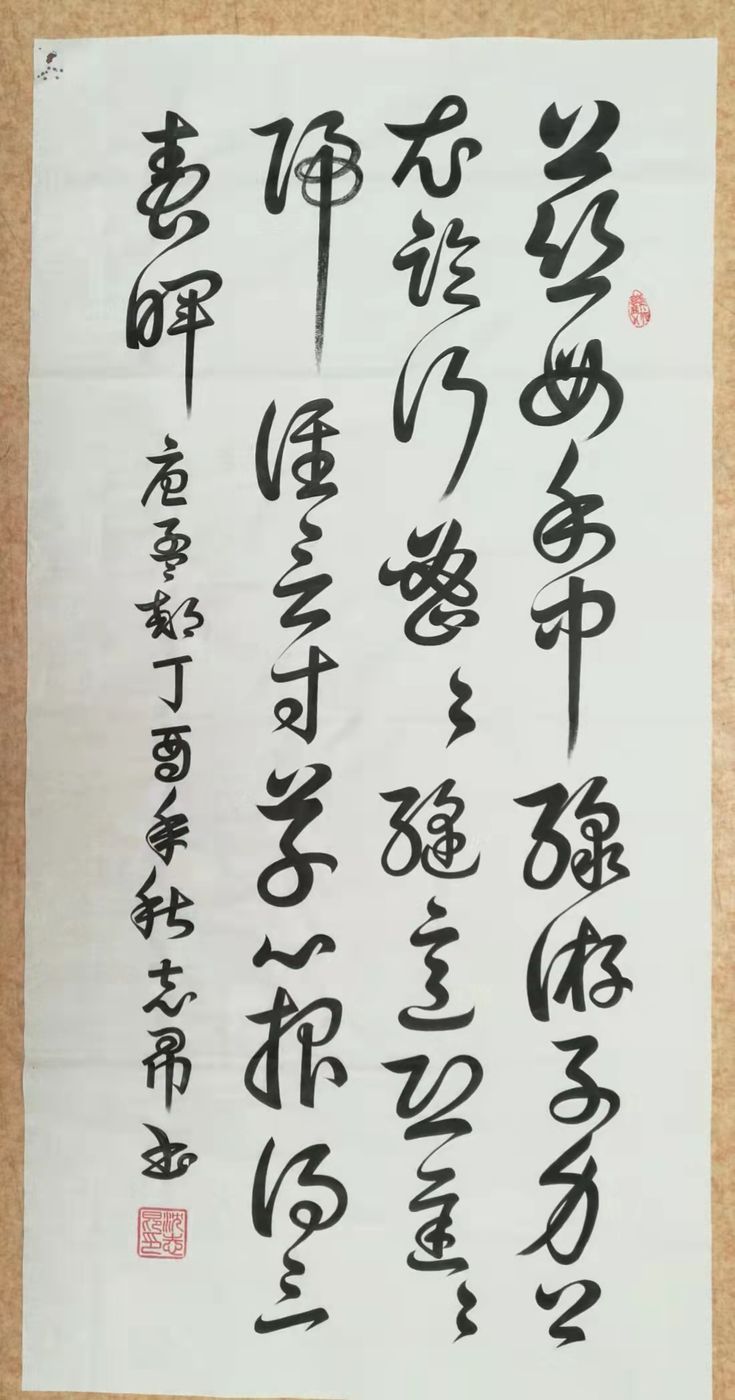 慈母手中線游子身上
衣臨行密〻縫意恐遲〻
歸誰言寸草心報得三
春暉 唐孟郊丁酉年秋志昂書
沈志昂印